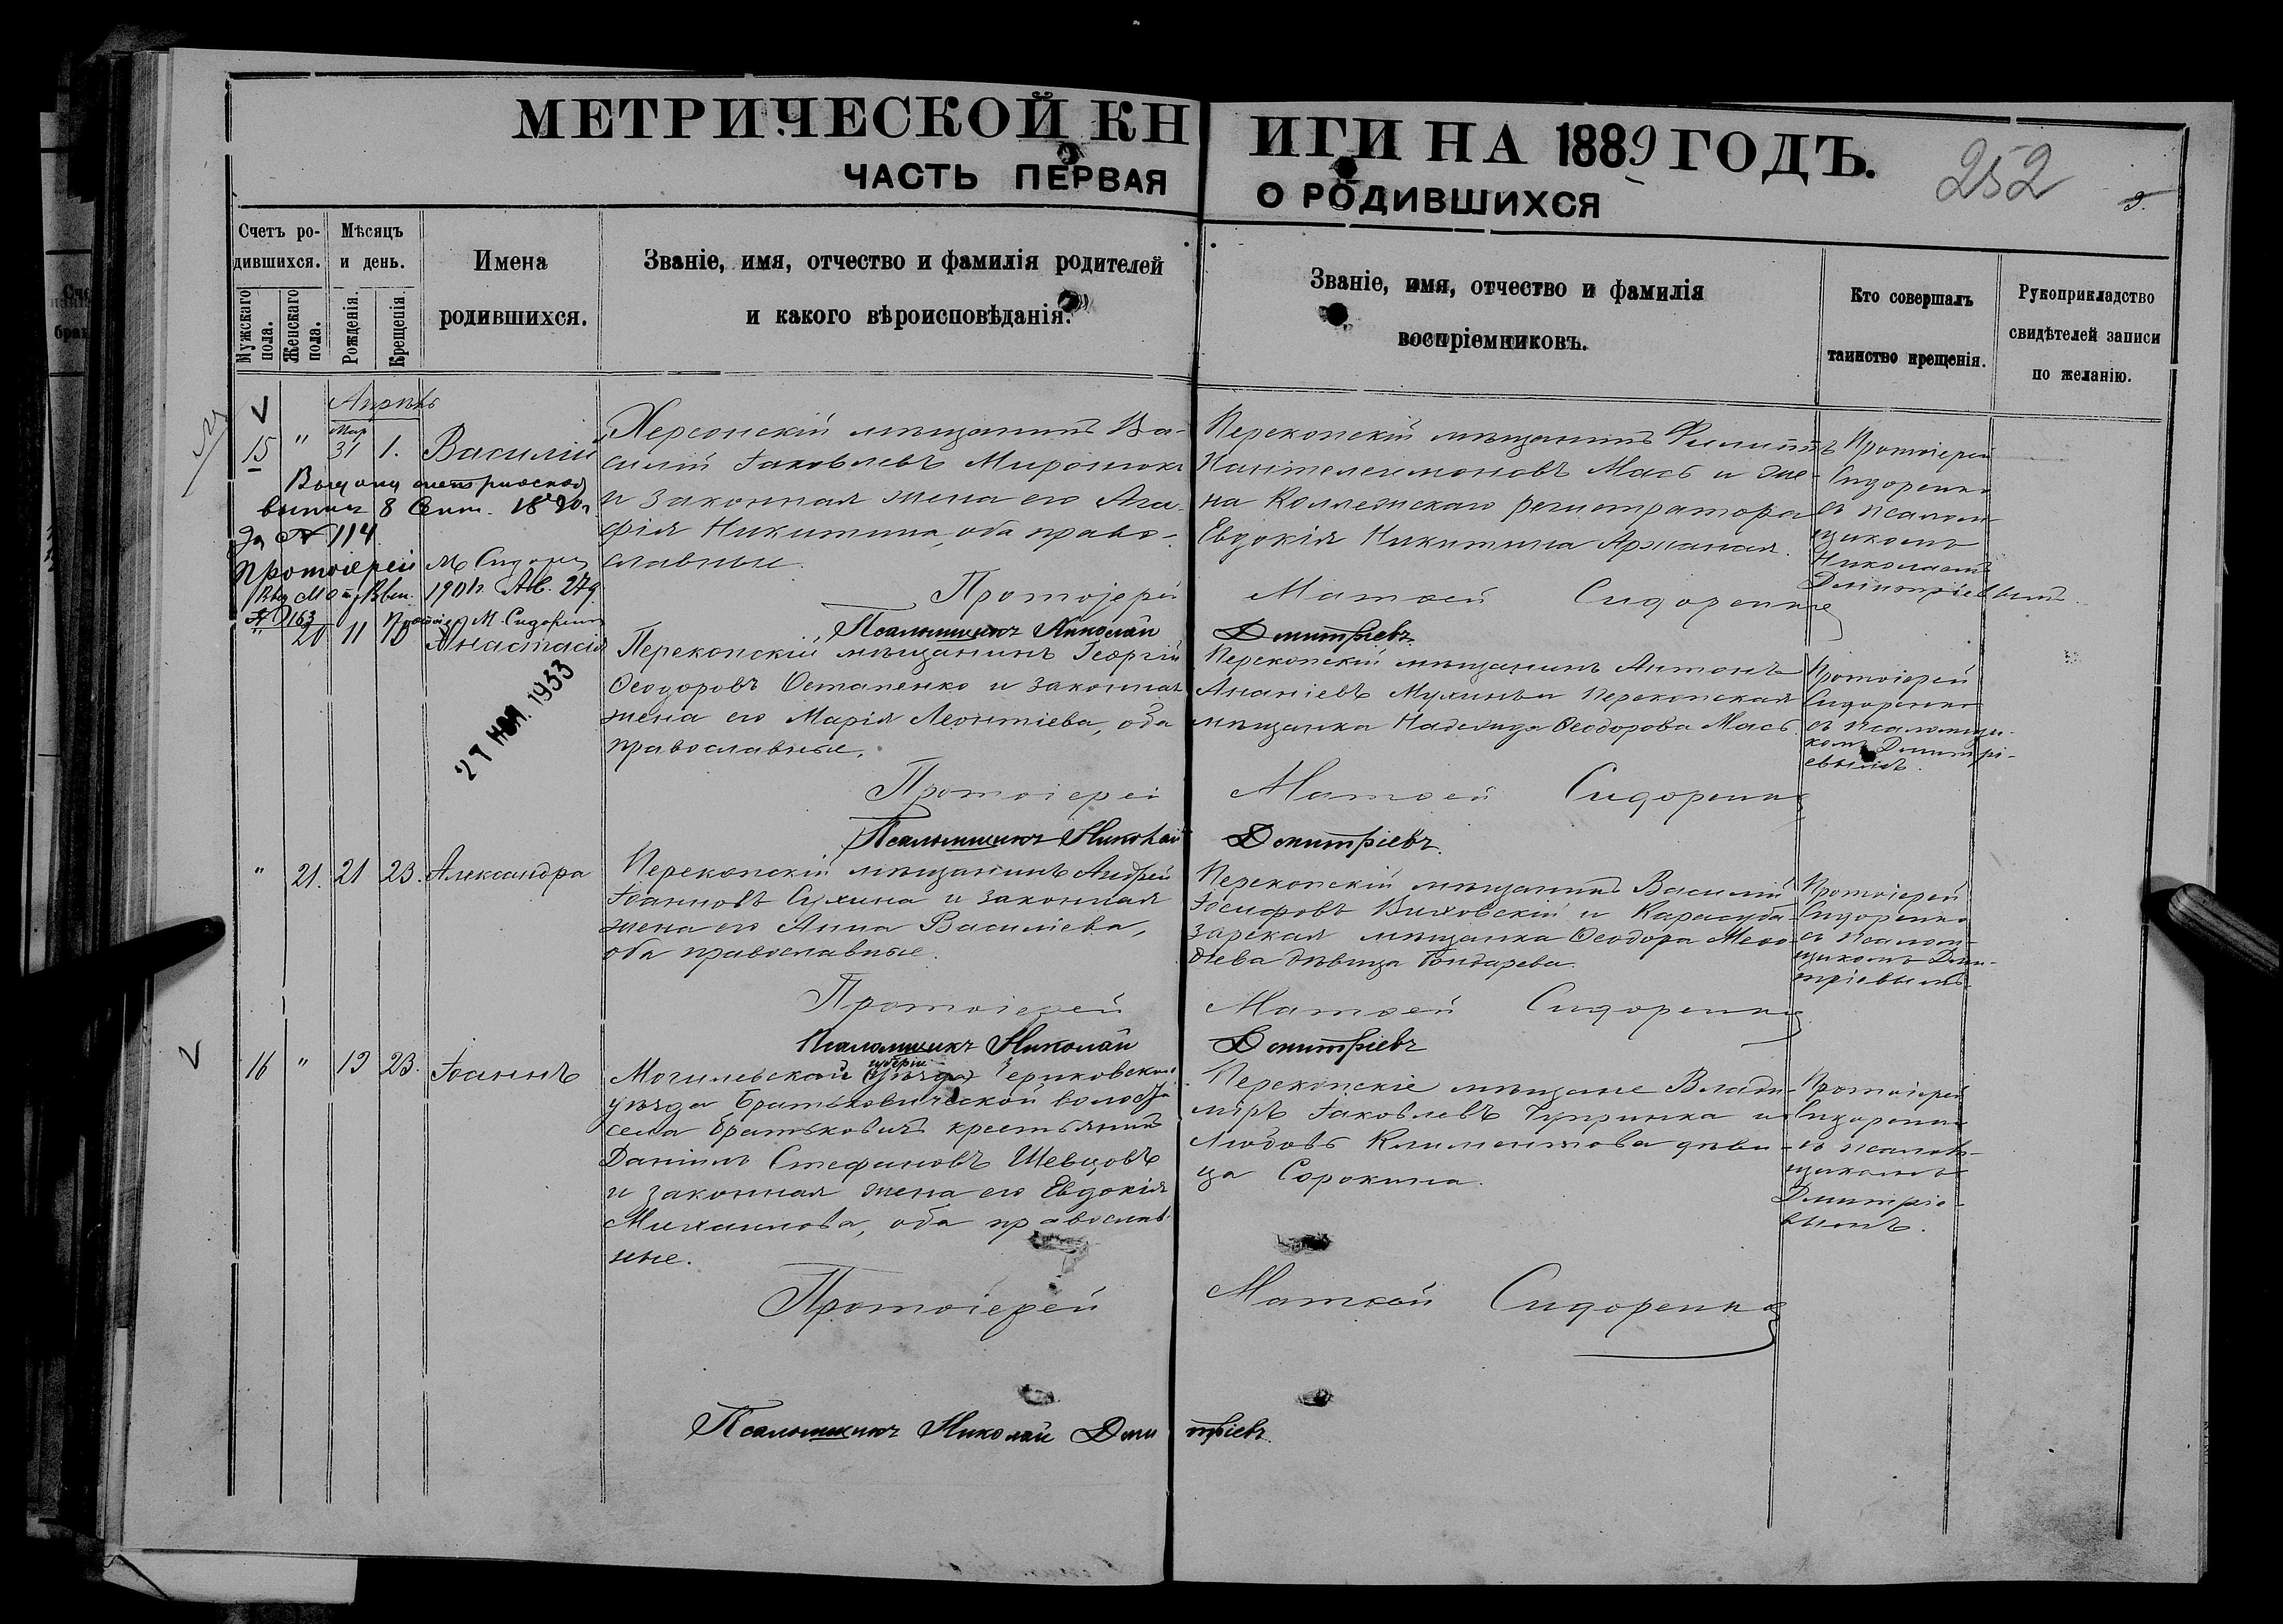 МЕТРИЧЕСКОЙ КНИГИ НА 1889 ГОДЪ.
252
ЧАСТЬ ПЕРВАЯ О РОДИВШИХСЯ
Счетъ ро-
дившихся.
Мужскаго пола.
Женскаго пола.
Мѣсяцъ
и день.
Рожденія.
Крещенія.
Имена
родившихся.
Званіе, имя, отчество и фамилія родителей
и какого вѣроисповѣданія.
Званіе, имя, отчество и фамилія
воспріемниковъ.
Кто совершалъ
таинство крещенія.
Рукоприкладство
свидѣтелей записи
по желанію.
Апрѣль
15 " Мар 31 1. Василій
Херсонскій мѣщанинъ Ва-
силій Іаковлевъ Миронюкъ
и законная жена его Ага-
фія Никитина, оба право-
славные.
Перекопскій мѣщанинъ Филиппъ
Пантелеимоновъ Мась и же-
на Коллежскаго регистратора
Евдокія Никитина Аржаная.
Протоіерей
Сидоренко
съ псалом-
щикомъ
Николаемъ
Дмитріевымъ.
8 Сент. 1890 г
За № 114
Протоіерей М Сидорен
№ 163 Протоіер М. Сидоренко
Протоіерей Матѳей Сидоренко
Псаломщикъ Николай Дмитріевъ
" 20 11 Анастасія
27 НОЯ. 1933
Перекопскій мѣщанинъ Георгій
Ѳеодоровъ Остапенко и законная
жена его Марія Леонтіева, оба
православные.
Перекопскій мѣщанинъ Антонъ
Ананіевъ Мухинъ и перекопская
мѣщанка Надежда Ѳеодорова Мась
Протоіерей
Сидоренко
съ псаломщи-
комъ Дмитрі-
евымъ.
Протоіерей Матѳей Сидоренко
Псаломщикъ Николай Дмитріевъ.
" 21. 21 23. Александра
Перекопскій мѣщанинъ Андрей
Іоанновъ Сухина и законная
жена его Анна Василіева,
оба православные.
Перекопскій мѣщанинъ Василій
Іосифовъ Виховскій и Карасуба-
зарская мѣщанка Ѳеодора Меѳо-
діева дѣвица Бондарева.
Протоіерей
Сидоренко
съ псалом-
щикомъ Дми-
тріевымъ.
Протоіерей Матѳей Сидоренко
Псаломщикъ Николай Дмитріевъ
16 " 19 23. Іоаннъ
Могилевской губерніи (уѣзда) Чериковскаго
уѣзда Братьковической волости
села Братьковичъ крестьянинъ
Даніилъ Стефановъ Шевцовъ
и законная жена его Евдокія
Михаилова, оба православ-
ные.
Перекопскіе мѣщане Влади-
міръ Іаковлевъ Чупринка и
Любовь Климентова дѣви-
ца Сорокина.
Протоіерей
Сидоренко
съ псалом-
щикомъ
Дмитріе-
вымъ.
Протоіерей Матѳей Сидоренко
Псаломщикъ Николай Дмитріевъ